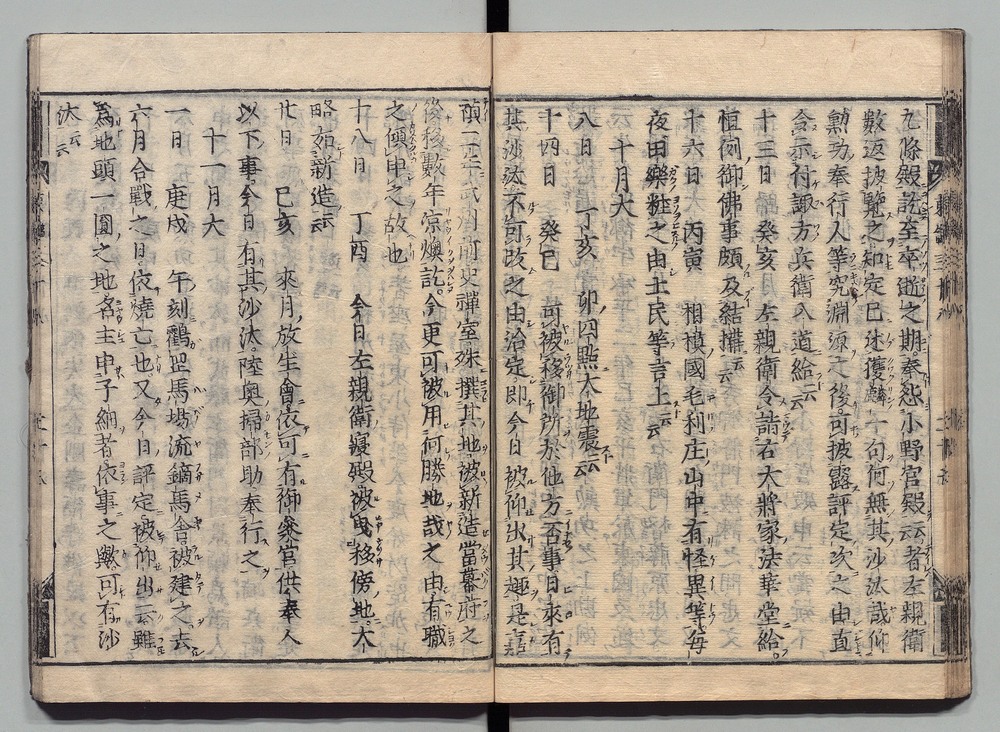 九條殿訖至卒逝之期奉怨小野宮殿云者左親衛
數返披覽之知定已述獲麟一句何無其沙汰哉仰
勳功奉行人等究淵源之後可披露評定次之由直
令示付諏方兵衛入道給云云
十三日癸亥月左親衛令詣右大將家法華堂給
恒例御佛事頗及結搆云云
十六日 丙寅 相摸國毛利庄山中有怪異等每
夜田樂粧之由土民等言上云云
十月大
八日 丁亥 卯四點大地震云云
十四日 癸巳 可被移御所於他方否事日來有
其沙汰不可改之由治定即今日被仰出其趣是嘉
禎二年武州前史禪室殊撰其地被新造當幕府之
後移數年凉燠訖今更可被用何勝地哉之由有職
之傾申之故也
十八日 丁酉 今日左親衛寢殿被曳移傍地大
略如新造云云
廿日 己亥 來月放生會依可有御參宮供奉人
以下事今日有其沙汰陸奥掃部助奉行之
十一月大
一日 庚戌 午刻鸖岡馬場流鏑馬舍被建之去
六月合戰之日依燒亡也又今日評定被仰出云雖
為地頭一圓之地名主申子細者依事之躰可有沙
汰云云